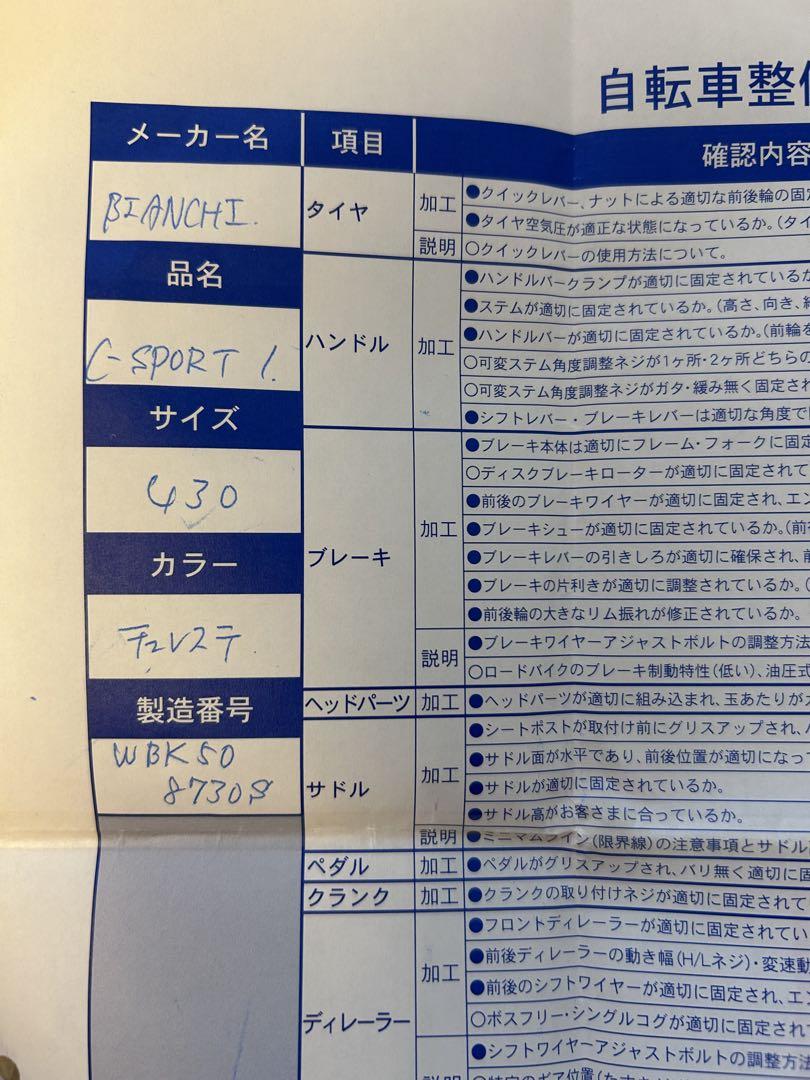 自転車整
メーカー名
項目
確認内容
BIANCHI.
タイヤ
加工
●クイックレバー、ナットによる適切な前後輪の固定
●タイヤ空気圧が適正な状態になっているか。(タイ
説明
○クイックレバーの使用方法について。
品名
C-SPORT 1.
ハンドル
加工
●ハンドルバークランプが適切に固定されているか
●ステムが適切に固定されているか。(高さ、向き、
●ハンドルバーが適切に固定されているか。(前輪を
○可変ステム角度調整ネジが1ヶ所・2ヶ所どちらの
○可変ステム角度調整ネジがガタ・緩み無く固定され
●シフトレバー・ブレーキレバーは適切な角度で
サイズ
430
ブレーキ
加工
●ブレーキ本体は適切にフレーム・フォークに固定
○ディスクブレーキローターが適切に固定されて
●前後のブレーキワイヤーが適切に固定され、エン
●ブレーキシューが適切に固定されているか。(前
●ブレーキレバーの引きしろが適切に確保され、前
●ブレーキの片利きが適切に調整されているか。(
●前後輪の大きなリム振れが修正されているか。
説明
●ブレーキワイヤーアジャストボルトの調整方法
○ロードバイクのブレーキ制動特性(低い)、油圧式
カラー
チェレステ
製造番号
WBK50
8730S
ヘッドパーツ
加工
●ヘッドパーツが適切に組み込まれ、玉あたりが
サドル
加工
●シートポストが取付け前にグリスアップされ、
●サドル面が水平であり、前後位置が適切になっ
●サドルが適切に固定されているか。
●サドル高がお客さまに合っているか。
説明
●ミニマムライン(限界線)の注意事項とサドル
ペダル
加工
●ペダルがグリスアップされ、バリ無く適切に固
クランク
加工
●クランクの取り付けネジが適切に固定されて
ディレーラー
加工
●フロントディレーラーが適切に固定されてい
●前後ディレーラーの動き幅(H/Lネジ)・変速動
●前後のシフトワイヤーが適切に固定され、エン
○ボスフリー・シングルコグが適切に固定されて
説明
●シフトワイヤーアジャストボルトの調整方法